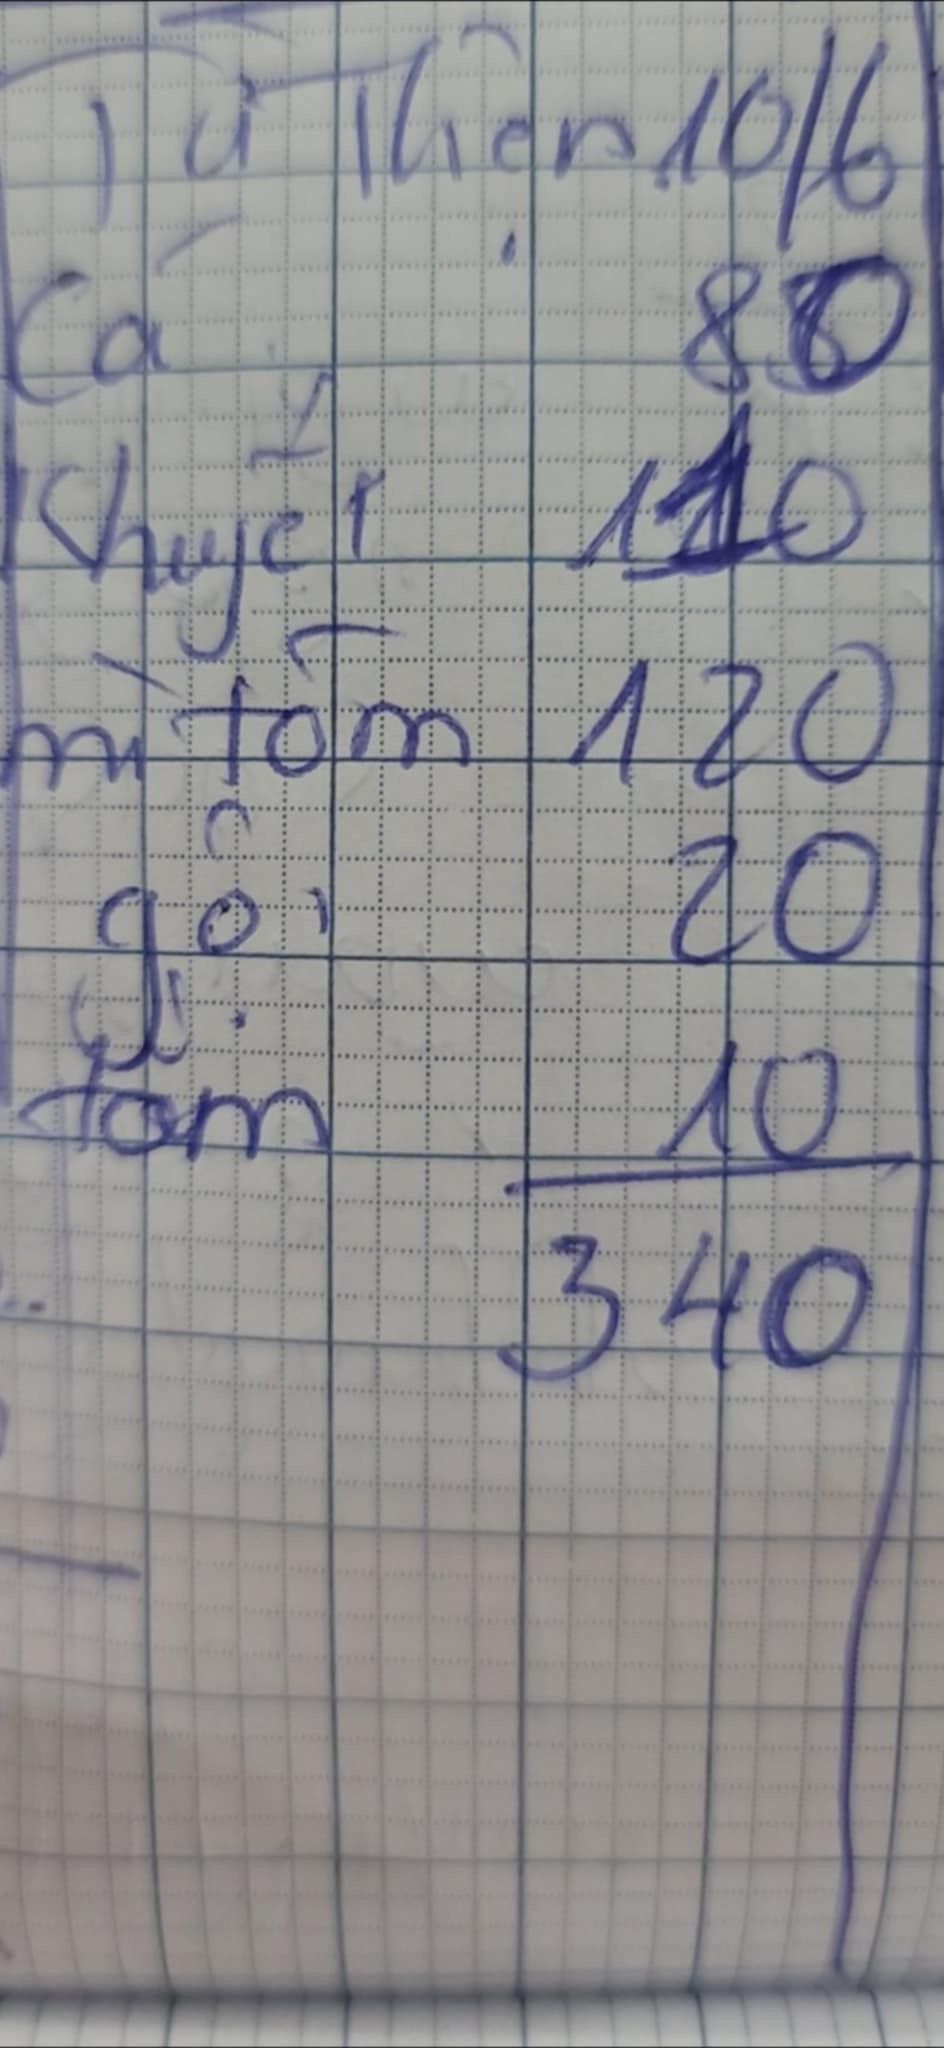 Từ Thiện 10/6
Cá 80
Khuyết 110
mì tôm 120
gỏi 20
tăm 10
340